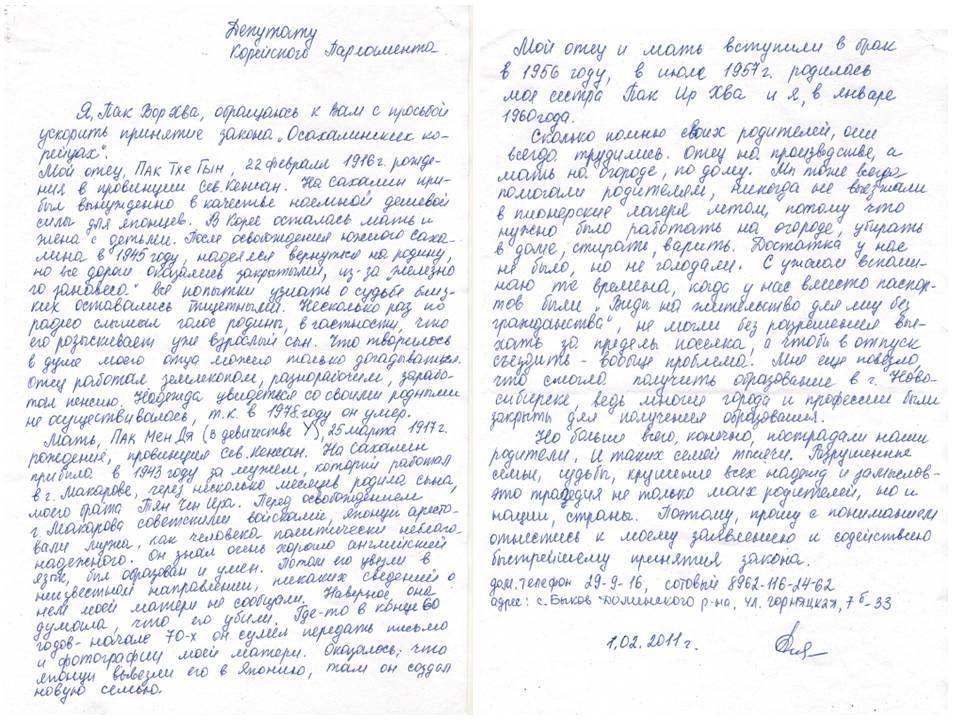 Депутату
Корейского Парламента.
Я, Пак Вор Хва, обращаюсь к Вам с просьбой
ускорить принятие закона „О сахалинских ко-
рейцах".
Мой отец, Пак Тхе Гын, 22 февраля 1916 г. рожде-
ния в провинции Сев. Кенсан. На Сахалин при-
был вынужденно в качестве наемной дешевой
силы для японцев. В Корее осталась мать и
жена с детьми. После освобождения южного Саха-
лина в 1945 году, надеялся вернуться на родину,
но все дороги оказались закрытыми, из-за „железно
го занавеса". Все попытки узнать о судьбе близ-
ких оставались тщетными. Несколько раз по
радио слышал голос родины, в частности, что
его разыскивает уже взрослый сын. Что творилось
в душе моего отца можно только догадываться.
Отец работал землекопом, разнорабочим, зарабо-
тал пенсию. Надежда увидеться со своими родными
не осуществилась, т.к. в 1978 году он умер.
Мать, Пак Мен Дя (в девичестве У), 25 марта 1917 г.
рождения, провинция Сев. Кенсан. На Сахалин
прибыла в 1943 году за мужем, который работал
в г. Макарове, через несколько месяцев родила сына,
моего брата Тян Чин Ира. Перед освобождением
г. Макарова советскими войсками, японцы аресто-
вали мужа, как человека политически неблаго-
надежного. Он знал очень хорошо английский
язык, был образован и умен. Потом его увезли в
неизвестном направлении, никаких сведений о
нем моей матери не сообщали. Наверное, она
думала, что его убили. Где-то в конце 60
годов - начале 70-х он сумел передать письмо
и фотографии моей матери. Оказалось, что
японцы вывезли его в Японию, там он создал
новую семью.
Мой отец и мать вступили в брак
в 1956 году, в июле 1957 г. родилась
моя сестра Пак Ир Хва и я, в январе
1960 года.
Сколько помню своих родителей, они
всегда трудились. Отец на производстве, а
мать на огороде, по дому. Мы тоже всегда
помогали родителям, никогда не выезжали
в пионерские лагеря летом, потому что
нужно было работать на огороде, убирать
в доме, стирать, варить. Достатка у нас
не было, но не голодали. С ужасом вспоми-
наю те времена, когда у нас вместо паспор-
тов были „Виды на жительство для лиц без
гражданства", не могли без разрешения вые-
хать за пределы поселка, а чтобы в отпуск
съездить - вообще проблема. Мне еще повезло,
что смогла получить образование в г. Ново-
сибирске, ведь многие города и профессии были
закрыты для получения образования.
Но больше всего, конечно, пострадали наши
родители. И таких семей тысячи. Разрушенные
семьи, судьбы, крушение всех надежд и замыслов-
это трагедия не только моих родителей, но и
нации, страны. Поэтому, прошу с пониманием
отнестись к моему заявлению и содействию
быстрейшему принятия закона.
дом. телефон 29-9-16, сотовый 8962-116-24-62
адрес: с. Быков Долинского р-на, ул. Горняцкая, 7б-33
1.02.2011 г.